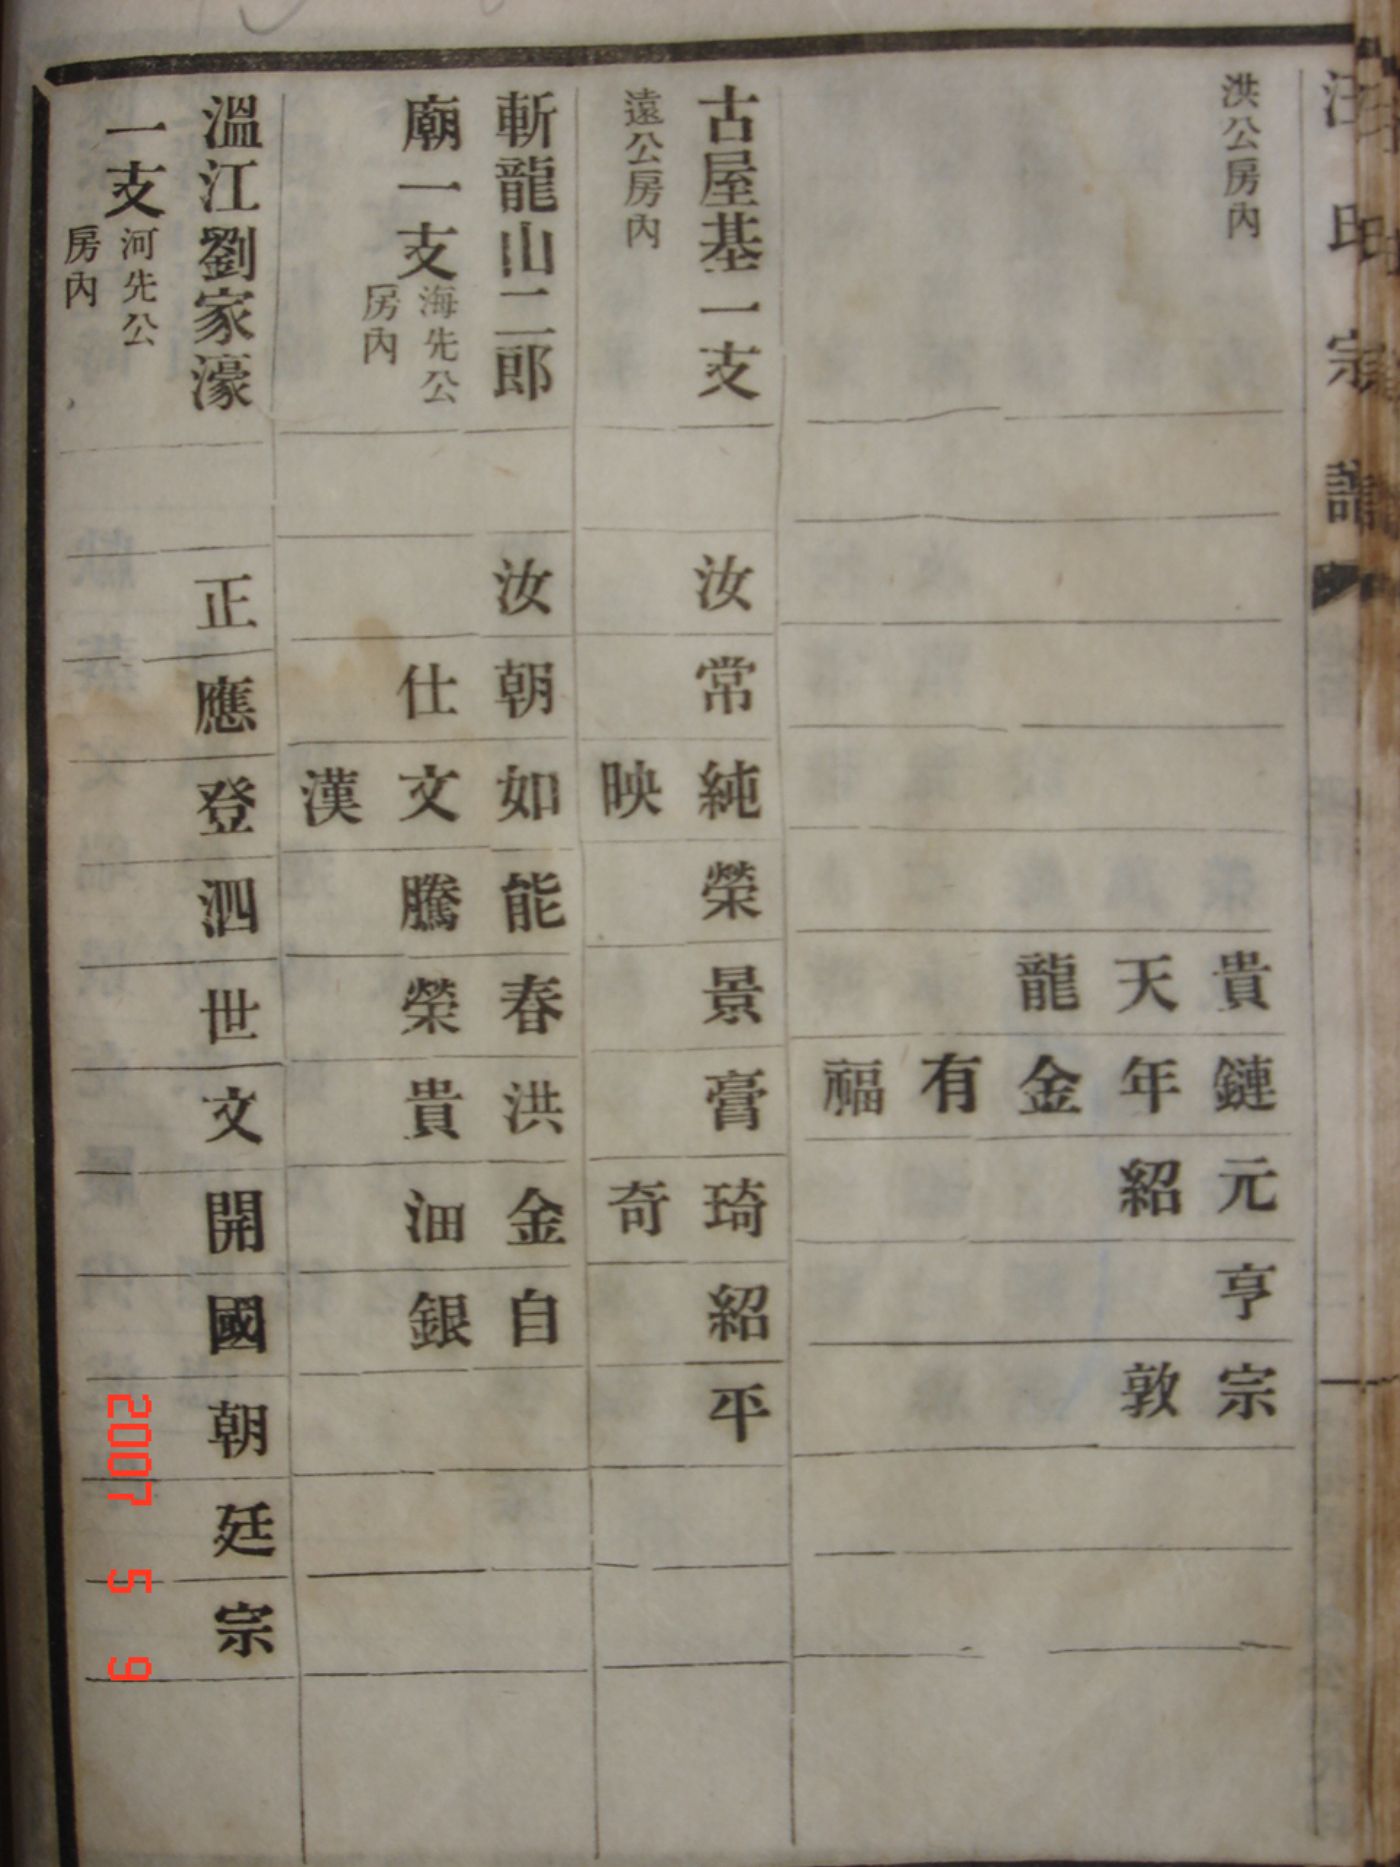 汪氏宗譜
洪公房內
貴鏈元亨宗
天年紹敦
龍金
有
福
古屋基一支
汝常純榮景膏琦紹平
遠公房內
映奇
斬龍山二郎
汝朝如能春洪金自
廟一支
海先公
房內
仕文騰榮貴沺銀
漢
溫江劉家濠
正應登泗世文開國朝廷宗
一支
河先公
房內
2007 5 9